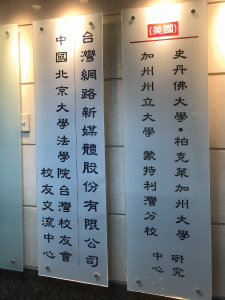 (美國)
史丹佛大學・柏克萊加州大學 研究
加州州立大學 蒙特利灣分校 中心
台灣網路新媒體股份有限公司
中國北京大學法學院台灣校友會
校友交流中心